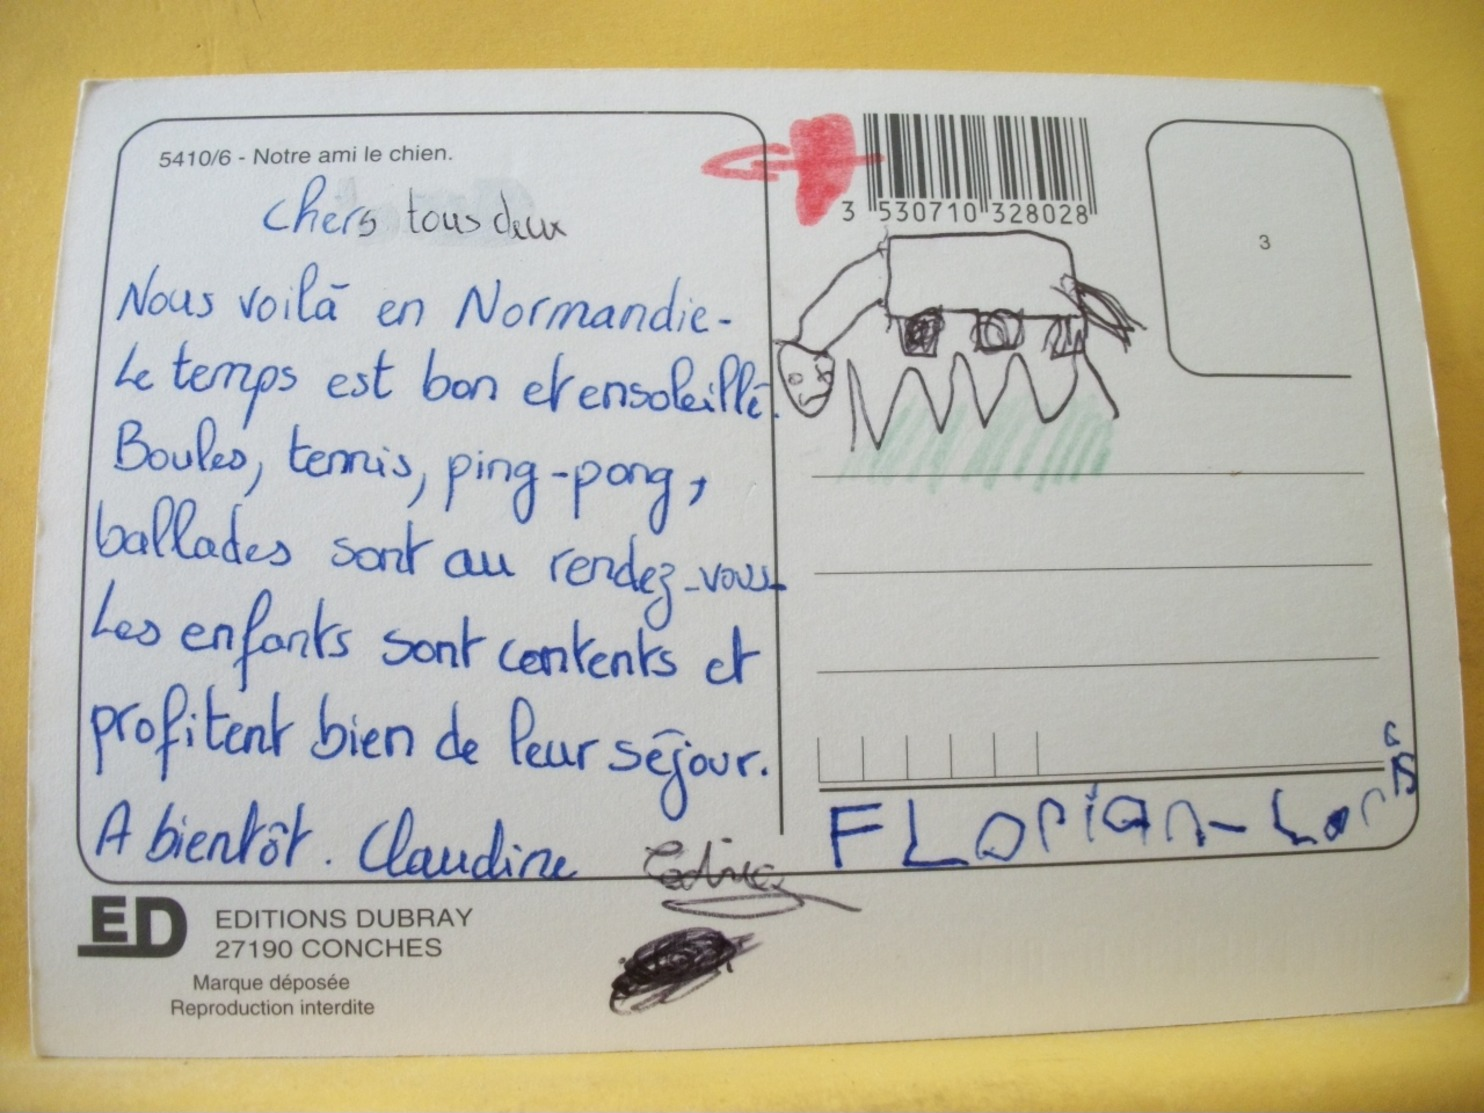 5410/6 - Notre ami le chien.
chers tous deux
Nous voilà en Normandie-
Le temps est bon et ensoleillé.
Boules, tennis, ping-pong,
ballades sont au rendez-vous-
Les enfants sont contents et
profitent bien de leur séjour.
A bientôt. Claudine
ED
EDITIONS DUBRAY
27190 CONCHES
Marque déposée
Reproduction interdite
3 530710 328028
3
FLorian-